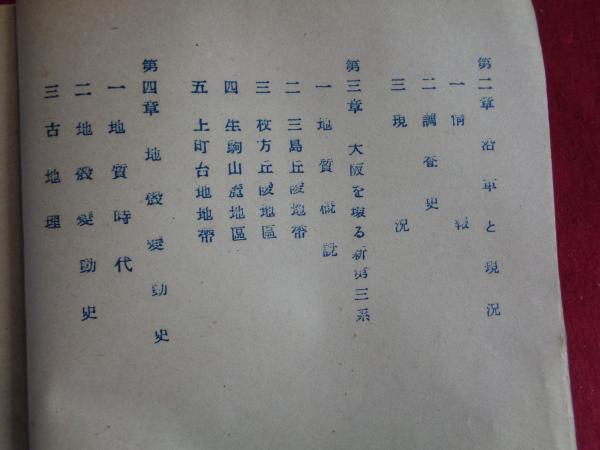 第二章 沿革と現況
一 情報
二 調査史
三 現況
第三章 大阪を環る新第三系
一 地質概説
二 三島丘陵地帶
三 枚方丘陵地區
四 生駒山麓地區
五 上町台地地帶
第四章 地殼變動史
一 地質時代
二 地殼變動史
三 古地理